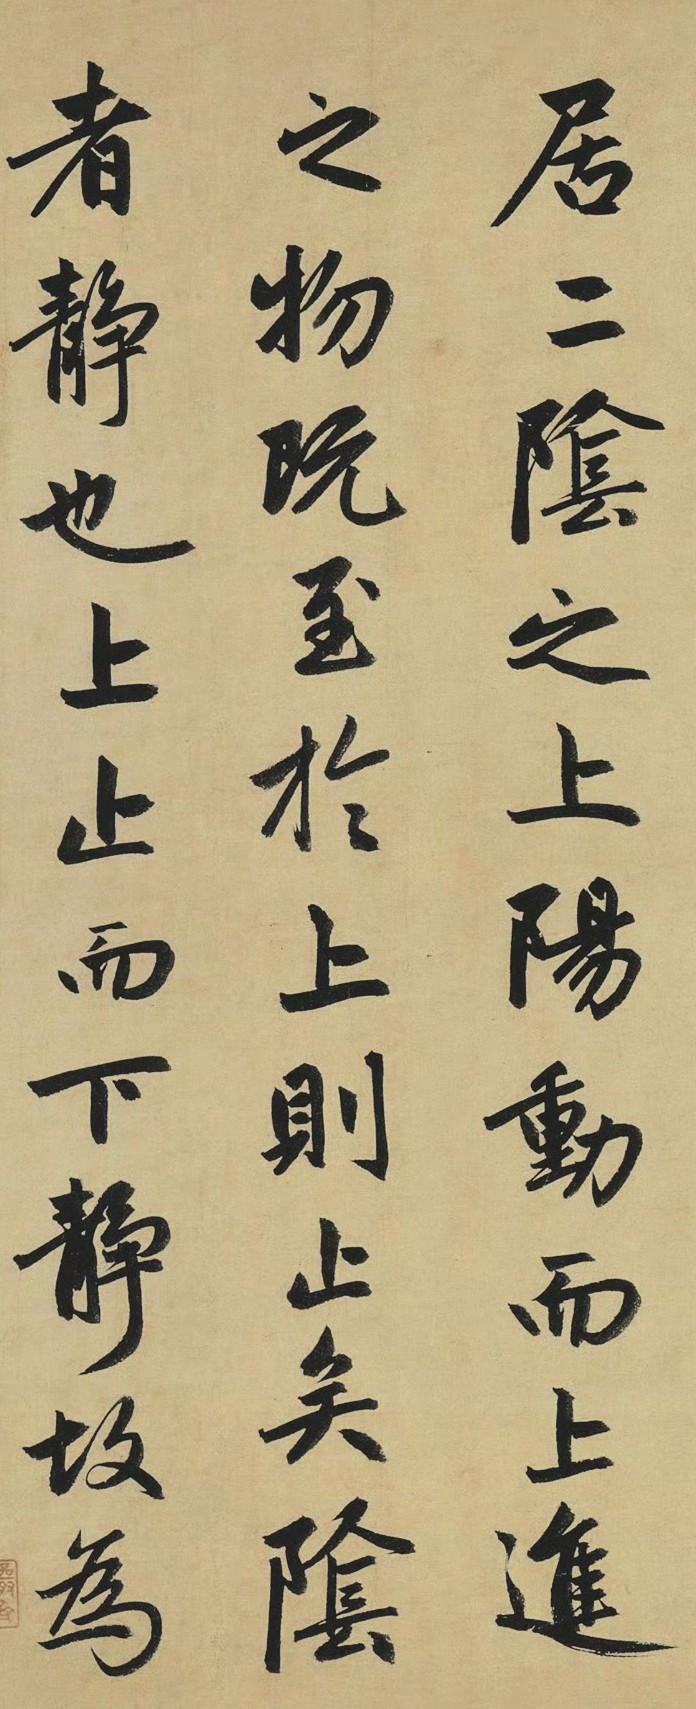 居二陰之上陽動而上進
之物既至於上則止矣陰
者靜也上止而下靜故為